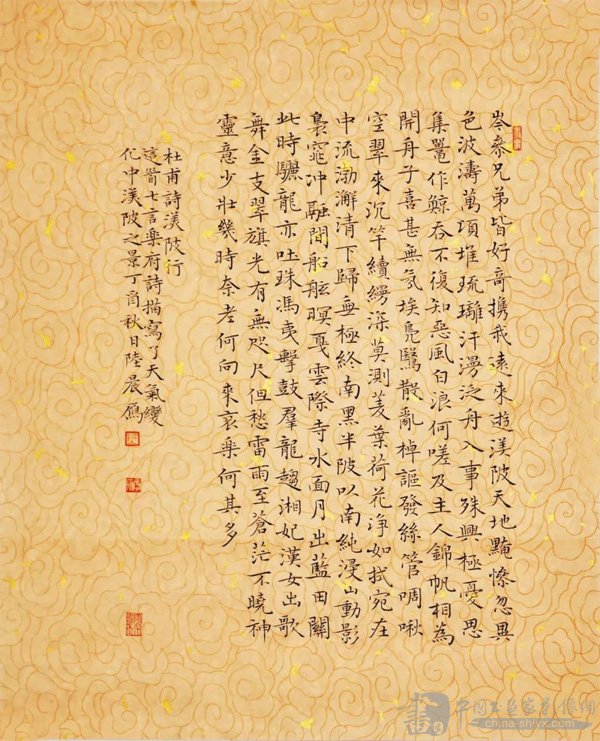 岑參兄弟皆好奇攜我遠來遊渼陂天地黤慘忽異
色波濤萬項堆琉璃汗漫泛舟入事殊興極憂思
集鼉作鯨吞不復知惡風白浪何嗟及主人錦帆相為
開舟子喜甚無氛埃鳧鷖散亂棹謳發絲管啁啾
空翠來沉竿續縵深莫測菱葉荷花淨如拭宛在
中流渤澥清下歸無極終南黑半陂以南純浸山動影
裊窕沖融間船舷暝戛雲際寺水面月出藍田關
此時驪龍亦吐珠馮夷擊鼓羣龍趨湘妃漢女出歌
舞金支翠旗光有無咫尺但愁雷雨至蒼茫不曉神
靈意少壯幾時奈老何向來哀樂何其多
杜甫詩渼陂行
這首七言樂府詩描寫了天氣變
化中渼陂之景丁酉秋日陸晨
china-shyx.com